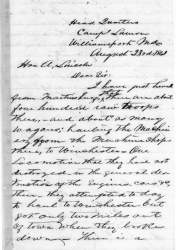 Head Quarters
Camp Lamon
Williamsport Md.
August 23rd 1861
Hon A. Lincoln
Dear Sir:
I have just heard
from Martinsburg, there are abt
four hundred troops
there, and about as many
wagons; hauling the Machin
ery from the Machine Shops
there, to Winchester One
Locomotive that they had not
destroyed in the general des-
truction of the Engines &c
there, they attempted to day
to haul to Winchester but
got only two miles out
of town when they broke
down. There is a